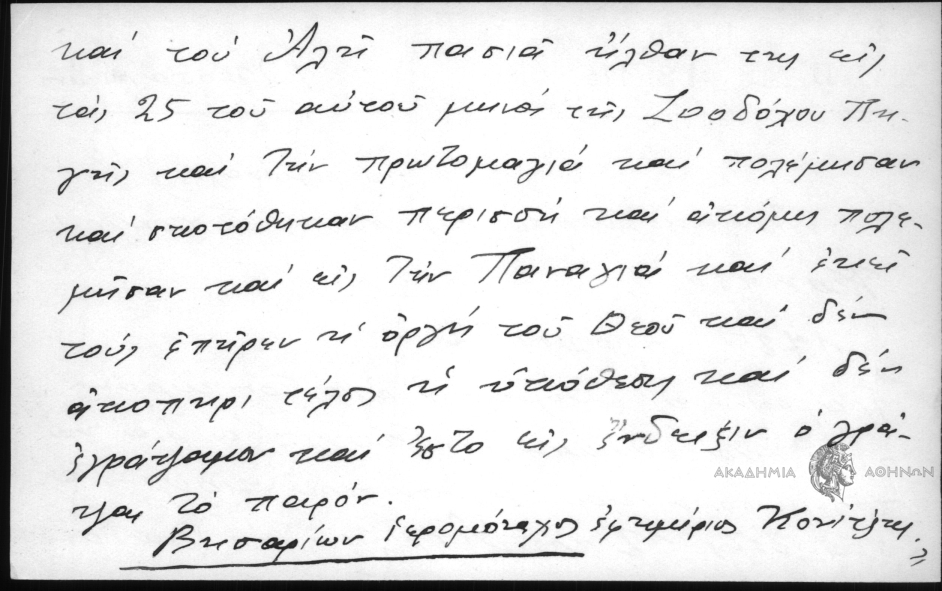 καί τοῦ Ἀλῆ πασιᾶ ἦλθαν της εἰς
τάς 25 τοῦ αὐτοῦ μηνός τῆς Ζωοδόχου Πη-
γῆς καί τήν πρωτομαγιά καί πολέμησαν
καί σκοτόθηκαν περισσή καί ἀκόμη πολε-
μῆσαν καί εἰς τήν Παναγιά καί ἐκεῖ
τούς ἐπῆρεν ἡ ὀργή τοῦ Θεοῦ καί δέν
τέλος ἡ ὑπόθεσης καί δέν
ἐγράψαμεν καί ἔστο εἰς ἔνδειξιν ὁ γρά-
ψας τό παρόν.
ΑΚΑΔΗΜΙΑ ΑΘΗΝΩΝ
Βησαρίων ἱερομόναχος ἐφημέριος Κονίτζης."